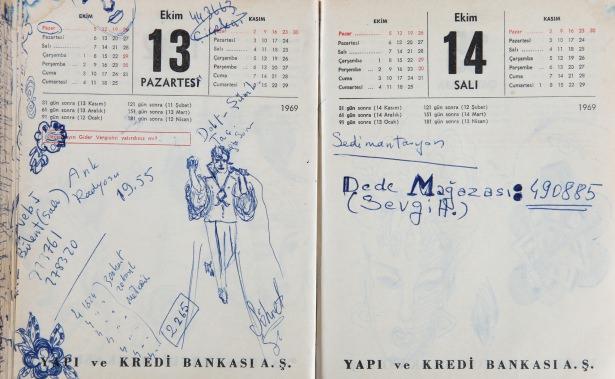 EKİM
Ekim
KASIM
Pazar 5 12 19 26
Pazartesi 6 13 20 27
Salı 7 14 21 28
Çarşamba 1 8 15 22 29
Perşembe 2 9 16 23 30
Cuma 3 10 17 24 31
Cumartesi 4 11 18 25
13
PAZARTESİ
2 9 16 23 30
3 10 17 24
4 11 18 25
5 12 19 26
6 13 20 27
7 14 21 28
1 8 15 22 29
31 gün sonra (13 Kasım) 121 gün sonra (11 Şubat)
61 gün sonra (13 Aralık) 151 gün sonra (13 Mart)
91 gün sonra (12 Ocak) 181 gün sonra (12 Nisan)
1969
Gider Vergisini yatırdınız mı?
Ank
Radyosu
19.55
Bülent (Salı)
278320
2265
YAPI ve KREDİ BANKASI A. Ş.
EKİM
Ekim
KASIM
Pazar 5 12 19 26
Pazartesi 6 13 20 27
Salı 7 14 21 28
Çarşamba 1 8 15 22 29
Perşembe 2 9 16 23 30
Cuma 3 10 17 24 31
Cumartesi 4 11 18 25
14
SALI
2 9 16 23 30
3 10 17 24
4 11 18 25
5 12 19 26
6 13 20 27
7 14 21 28
1 8 15 22 29
31 gün sonra (14 Kasım) 121 gün sonra (12 Şubat)
61 gün sonra (14 Aralık) 151 gün sonra (14 Mart)
91 gün sonra (13 Ocak) 181 gün sonra (13 Nisan)
1969
Sedimantasyon
Dede Mağazası: 490885
(Sevgi H.)
YAPI ve KREDİ BANKASI A. Ş.